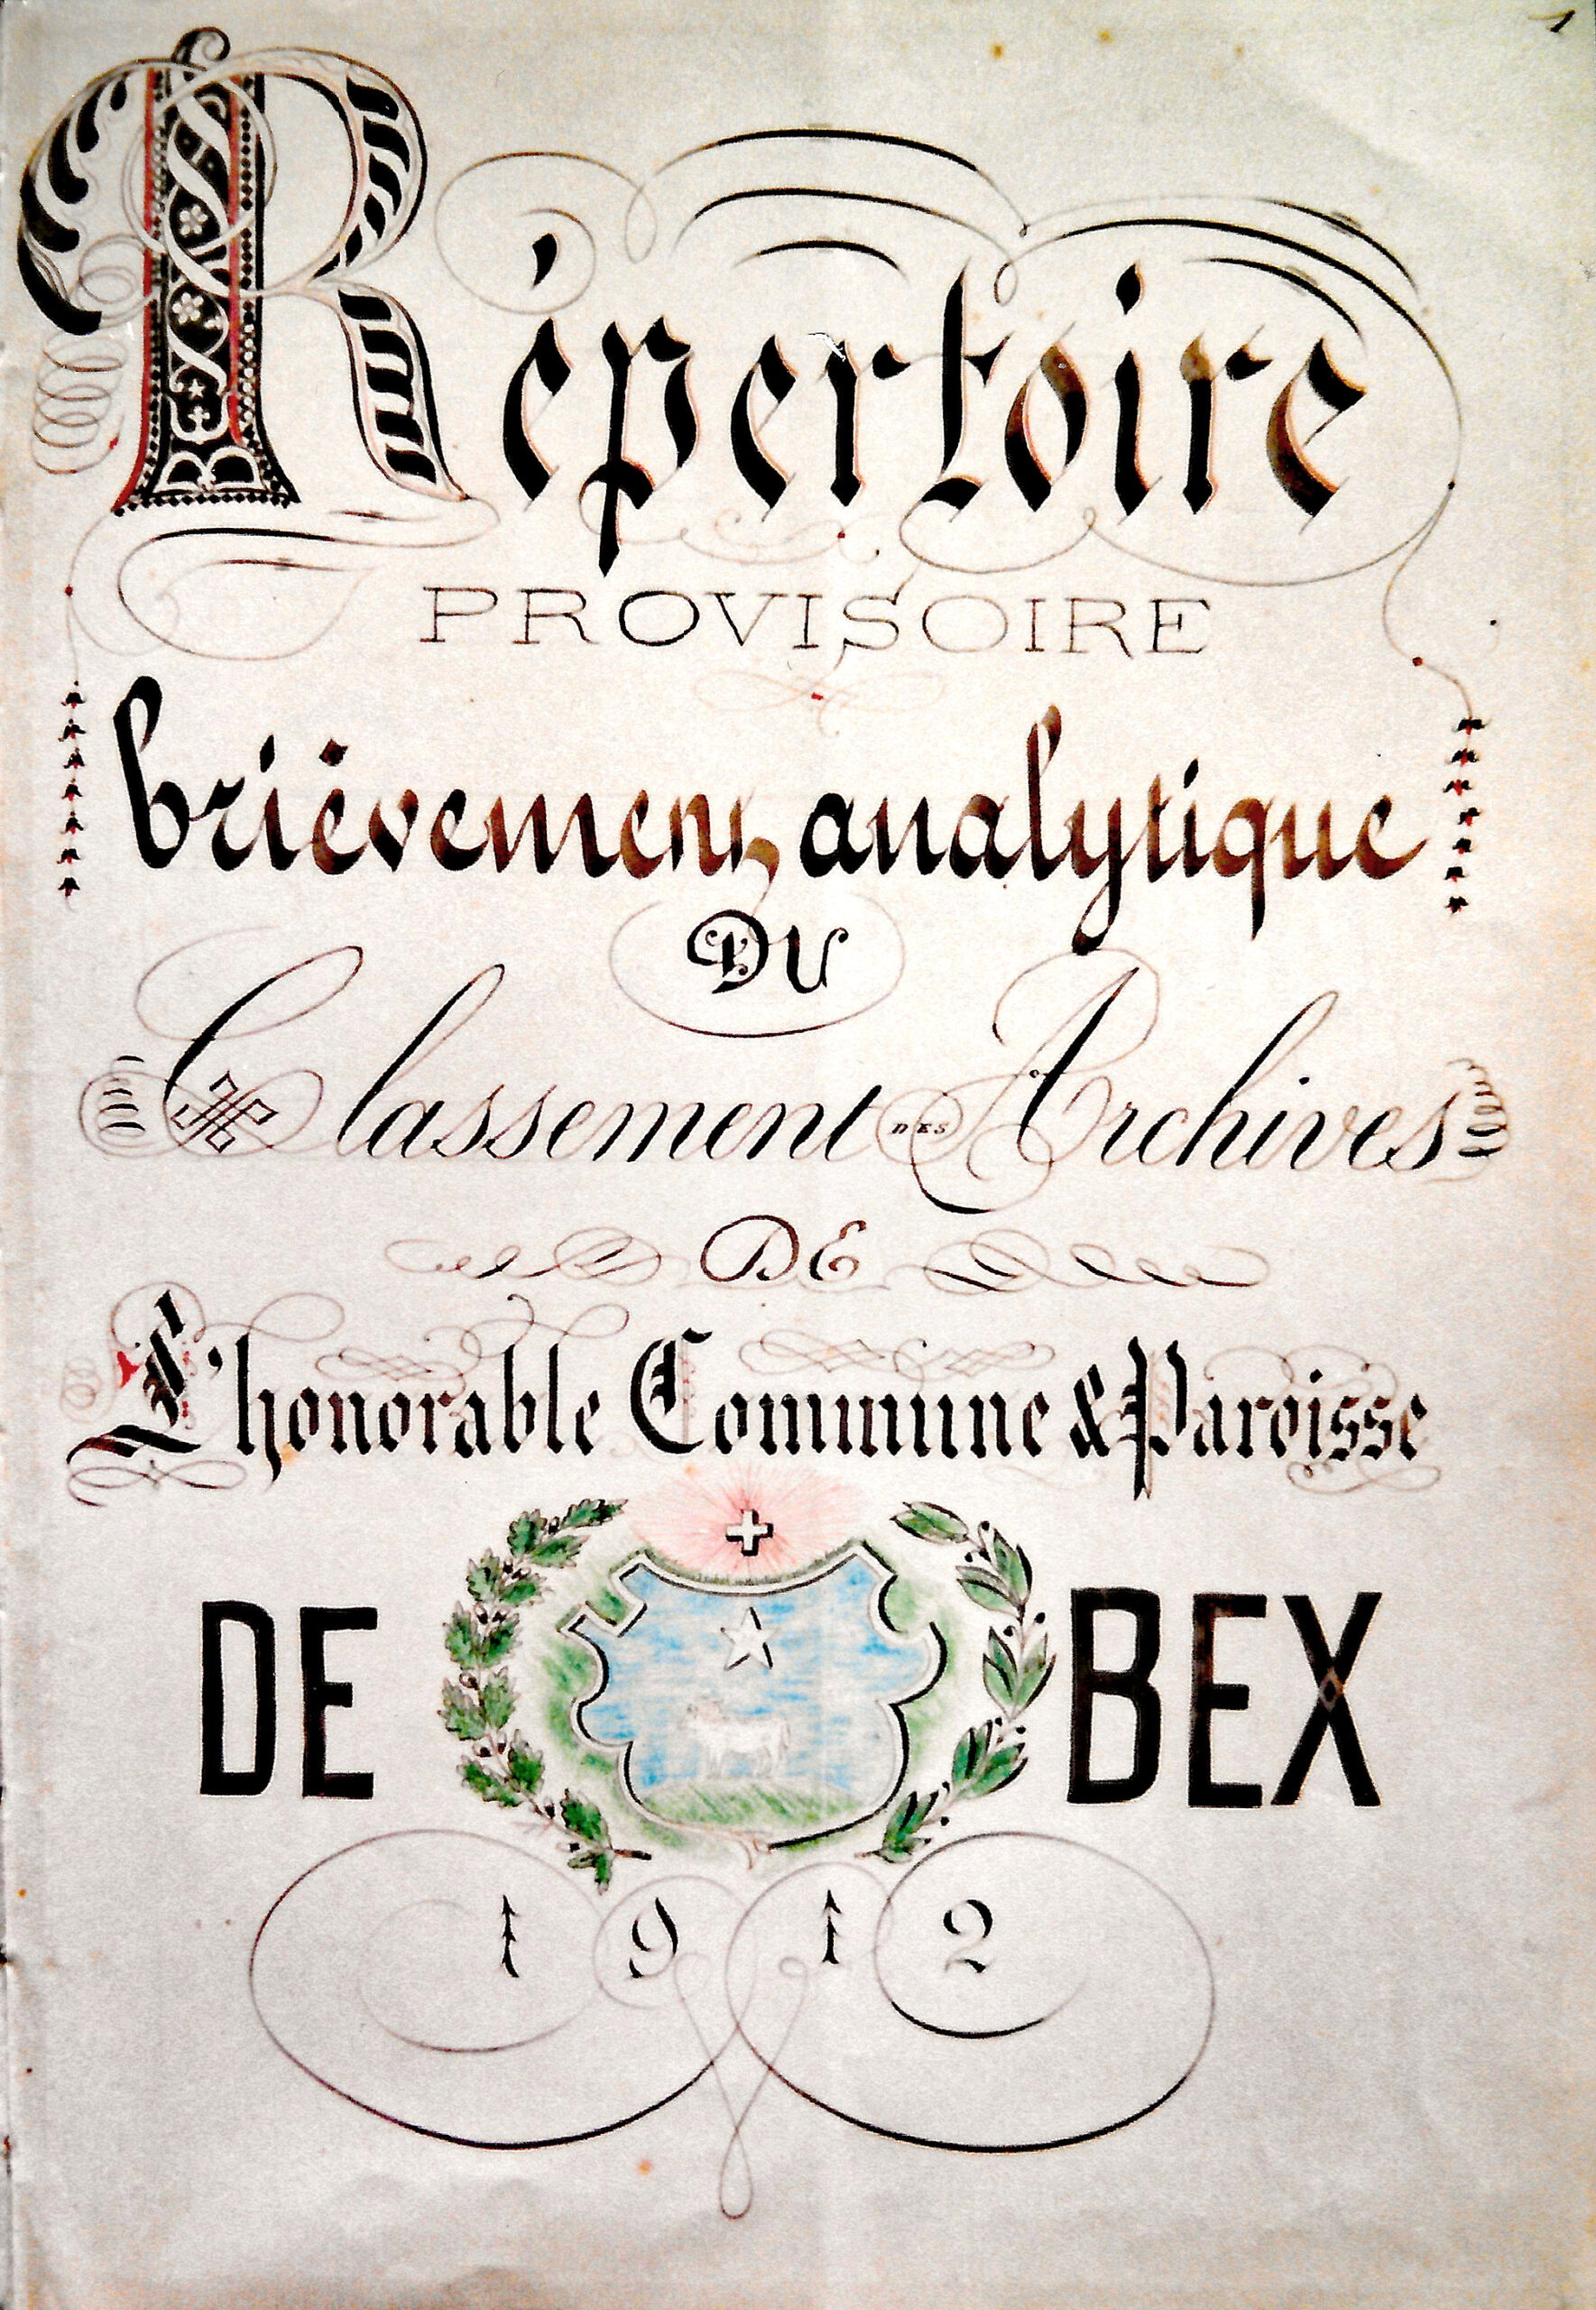 1
Répertoire
PROVISOIRE
brièvement analytique
DU
Classement DES Archives
DE
L'honorable Commune & Paroisse
DE BEX
1912